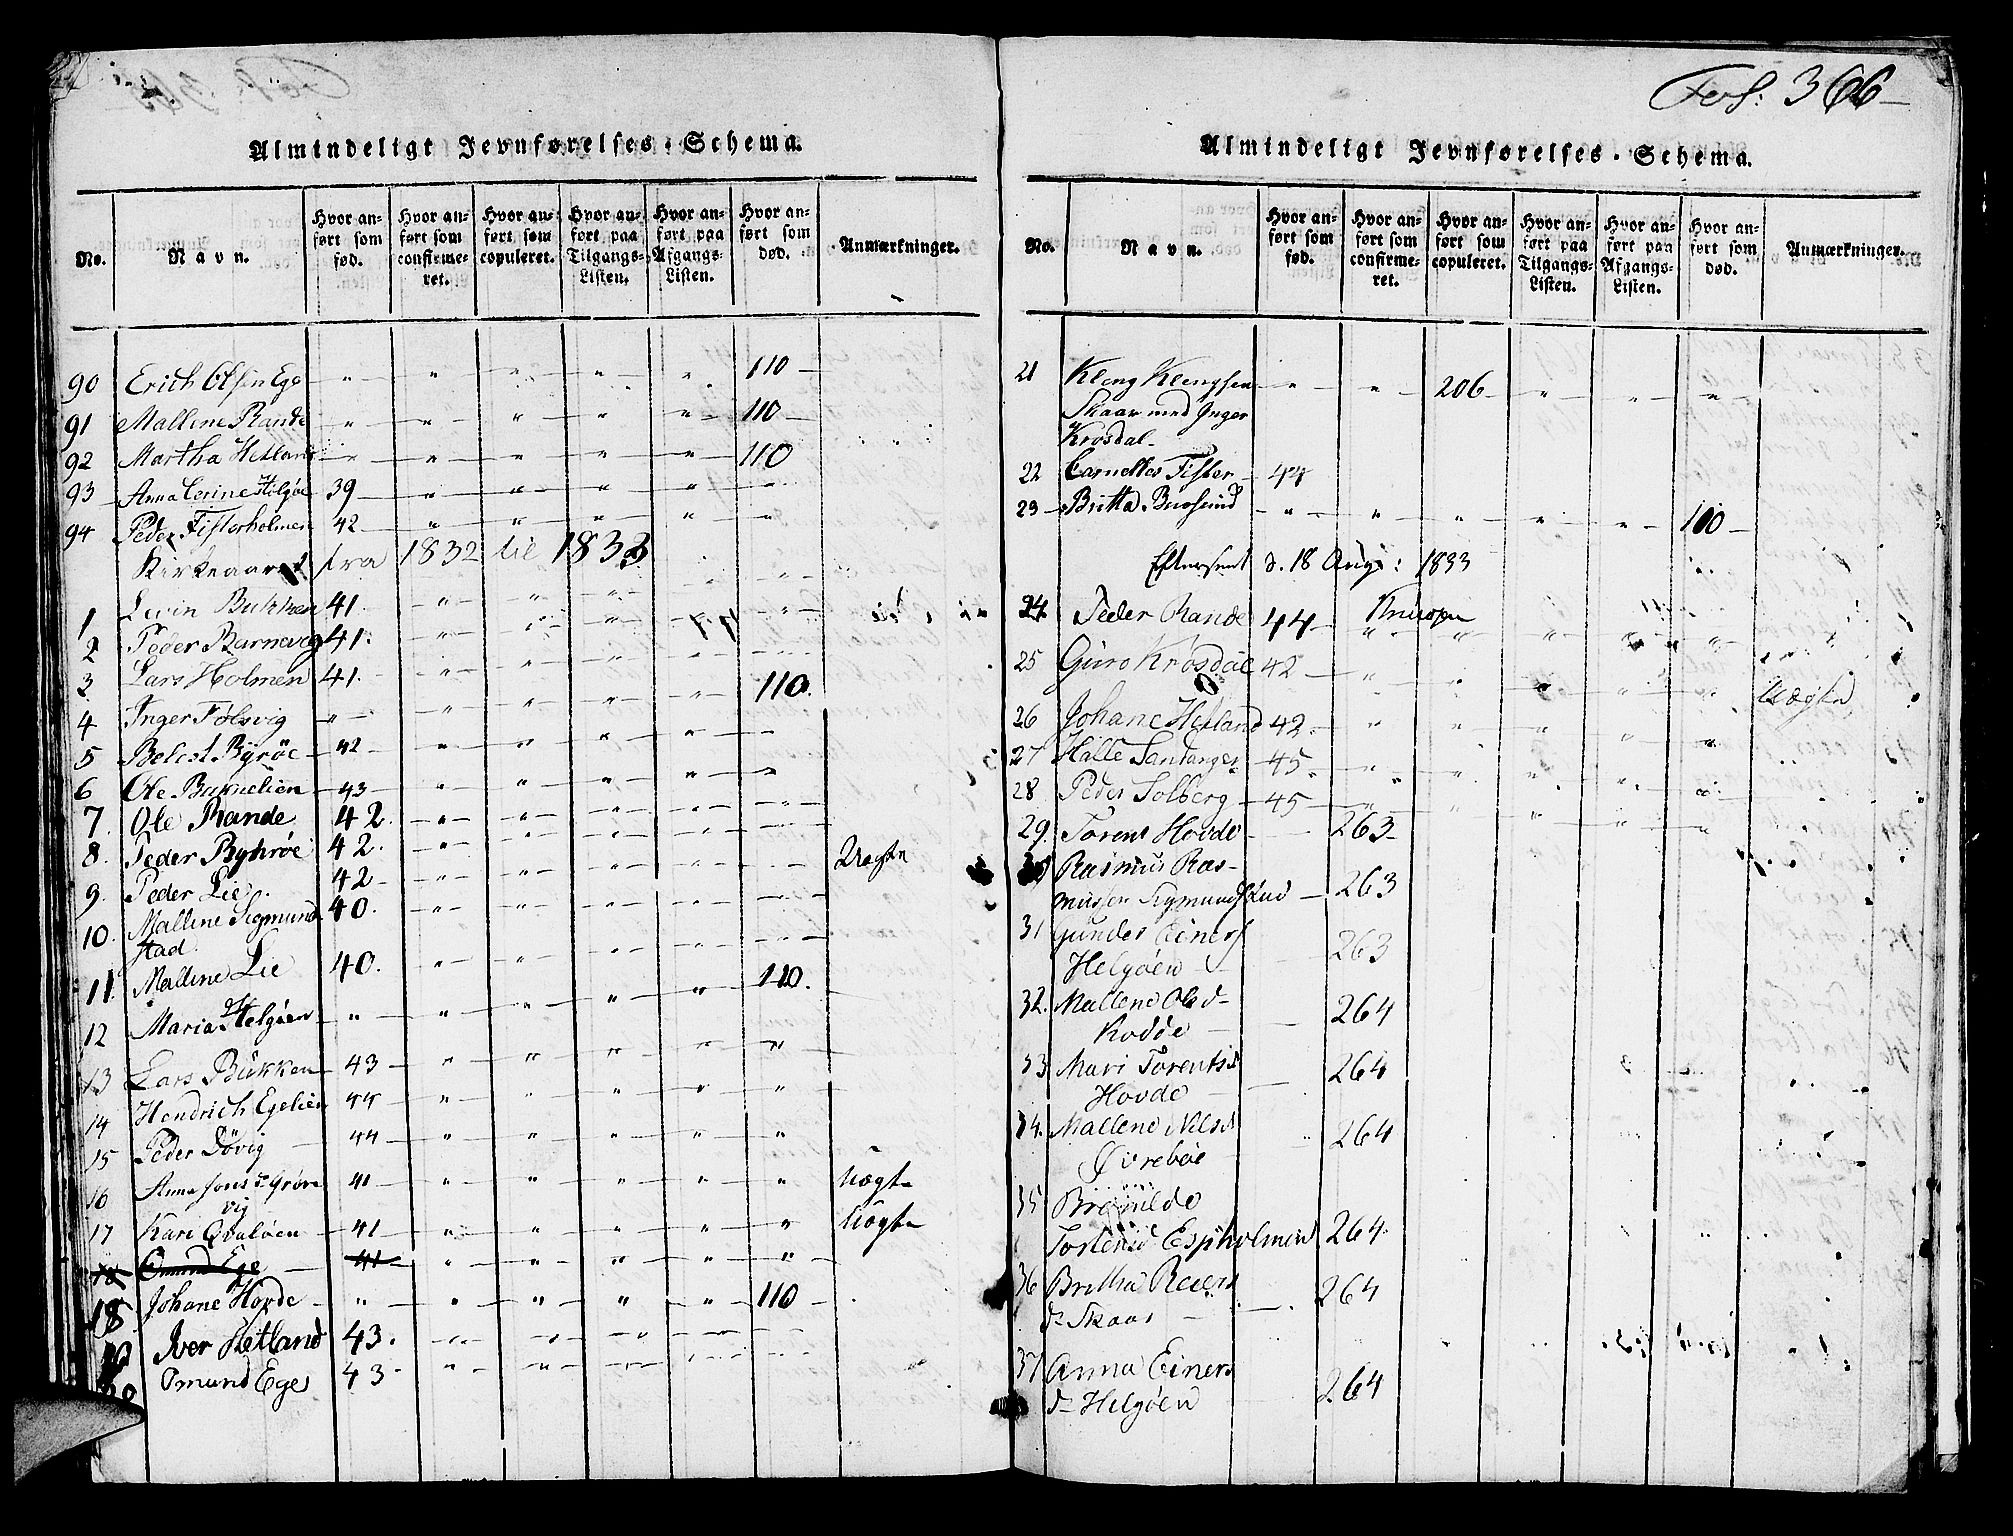 Almindeligt Jevnførelses-Schema.
No. Navn. Hvor anført som fød. Hvor anført som confirmeret. Hvor anført som copuleret. Hvor anført paa Tilgangs-Listen. Hvor anført paa Afgangs-Listen. Hvor anført som død. Anmærkninger.
90 Erich Olsen Ege " " " " " 110
91 Mallene Rande " " " " " 110
92 Martha Hetland " " " " " 110
93 Anna Cerine Helgøe 39 " " " " "
94 Peder Fisterholmen 42 " " " " "
Kirkeaaret fra 1832 til 1833
1 Levin Bukken 41
2 Peder Barnevig 41.
3 Lars Holmen 41.
4 Inger Følsvig " " " " " 110.
5 Belest Byröe 42 " " " " "
6 Ole Barnelien 43 " " " " "
7. Ole Rande 42.
8. Peder Byhrøe 42.
9. Peder Lie 42 Uægte
10. Mallene Sigmund
stad 40.
11. Mallene Lie 40.
12 Maria Helgøen " " " " " 110.
13 Lars Bükken 43 " " " " "
14 Hendrich Egelien 44 " " " " "
15 Peder Dövig 44 " " " " "
16 Anna Jons d. Grøn
vig 41 " " " " " Uægte
17 Kari Qvaløen 41 " " " " " Uægte
18 Omund Ege 41 " " " " "
18 Johane Hovde " " " " " 110
19 Iver Hetland 43.
20 Omund Ege 43
Fol: 366
Almindeligt Jevnførelses-Schema.
No. Navn. Hvor anført som fød. Hvor anført som confirmeret. Hvor anført som copuleret. Hvor anført paa Tilgangs-Listen. Hvor anført paa Afgangs-Listen. Hvor anført som død. Anmærkninger.
21 Kleng Klengsen " " 206 " " "
Skaar med Inger
Krosdal
22 Carnelles Fister 44
23 Britta " " " " " 110
Eftersent d. 18 Aug: 1833
24 Peder Rande 44
25 Guro Krosdal 42
26 Johane Hetland 42 Uægte
27 Halle Santanger 45
28 Peder Solberg 45
29. Torens Hovde 263
30 Rasmus Ras-
mussen Sigmundstad 263
31 Gunder Einers
Helgøen 263
32. Mallene Ols d
Hodöe 264
33 Mari Torents d
Hovde 264
34. Mallene Nils d
Øvrebøe 264
35 Bromilde
Tostens d Espholmen 264.
36 Britha Reiers
d Skaar 264
37 Anna Einers
d Helgøen 264